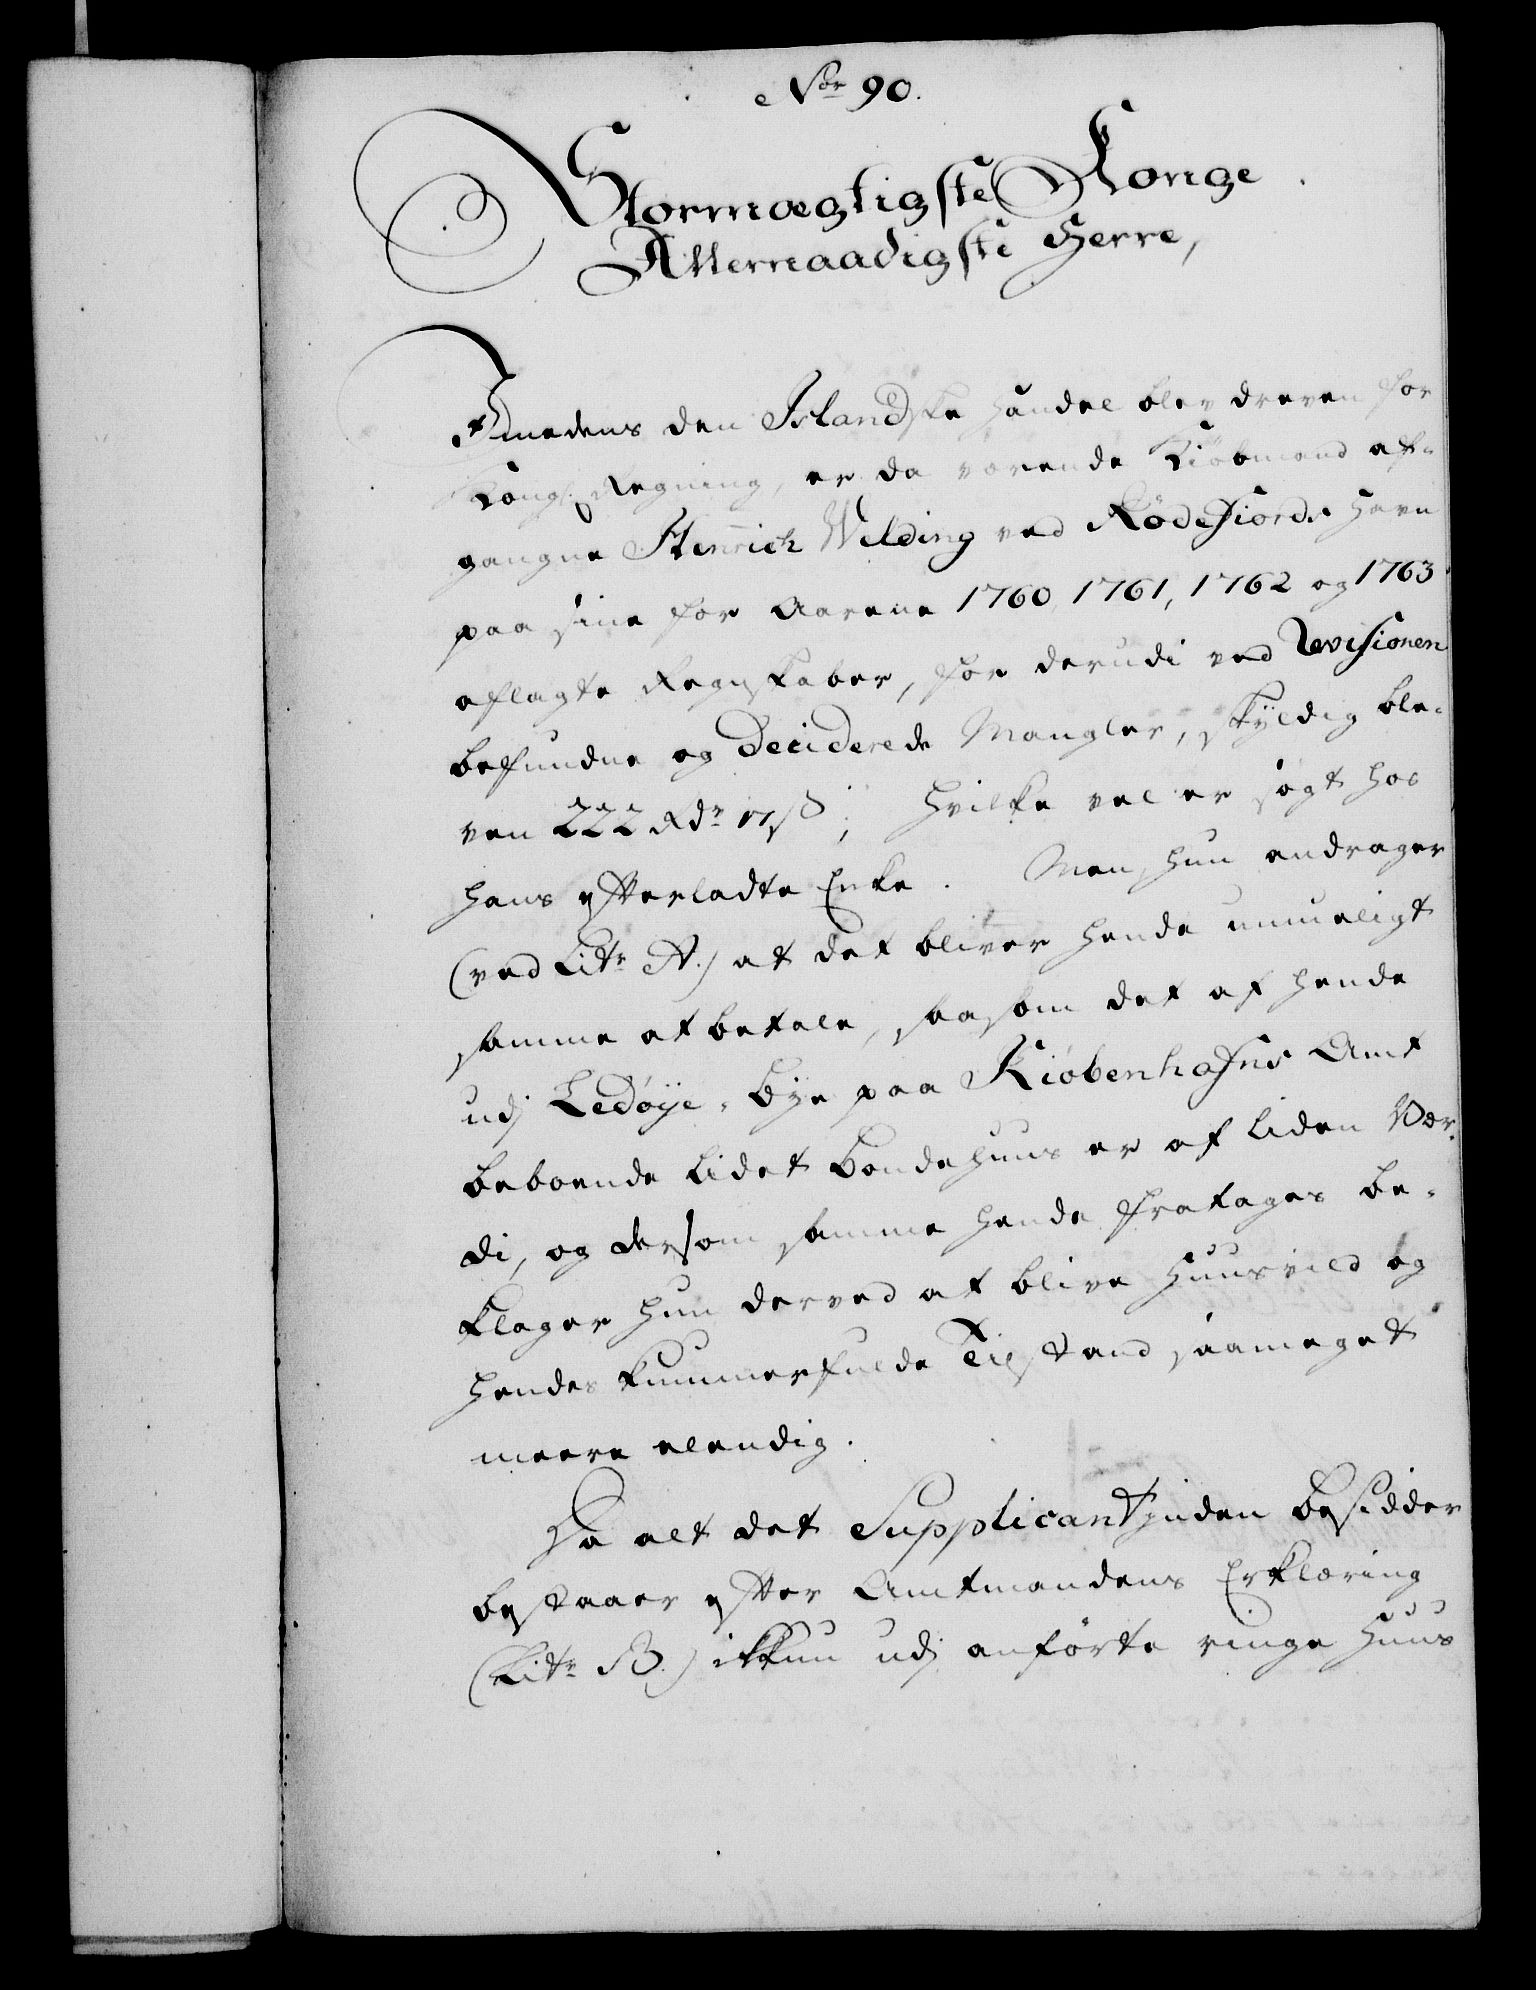 No 90.
Stormægtigste Konge
Allernaadigste Herre,
Imedens den Islandske Handel blev dreven for
Kongl. Regning, er da værende Kiöbmand af-
gangne Henrich Welding ved Rödefiords Havn
paa sine for Aarene 1760, 1761, 1762 og 1763
aflagte Regnskaber, for derudi ved Revisionen
befundne og Deciderede Mangler, skyldig ble-
ven 222 Rdr 17 ß; hvilke vel er sögt hos
hans efterladte Enke. Men hun andrager
(ved Litr A.) at det bliver hende umueligt
samme at betale, saasom det af hende
udj Ledöye-Bye paa Kiöbenhafns Amt
beboende lidet Bondehuus er af liden Vær-
di, og dersom samme hende fratages be-
klager hun derved at blive huusvild og
hendes kummerfulde Tilstand saameget
meere elendig.
Da alt det Supplicantinden besidder
bestaaer efter Amtmandens Erklæring
(Litr B.) ikkun udj anförte ringe Huus